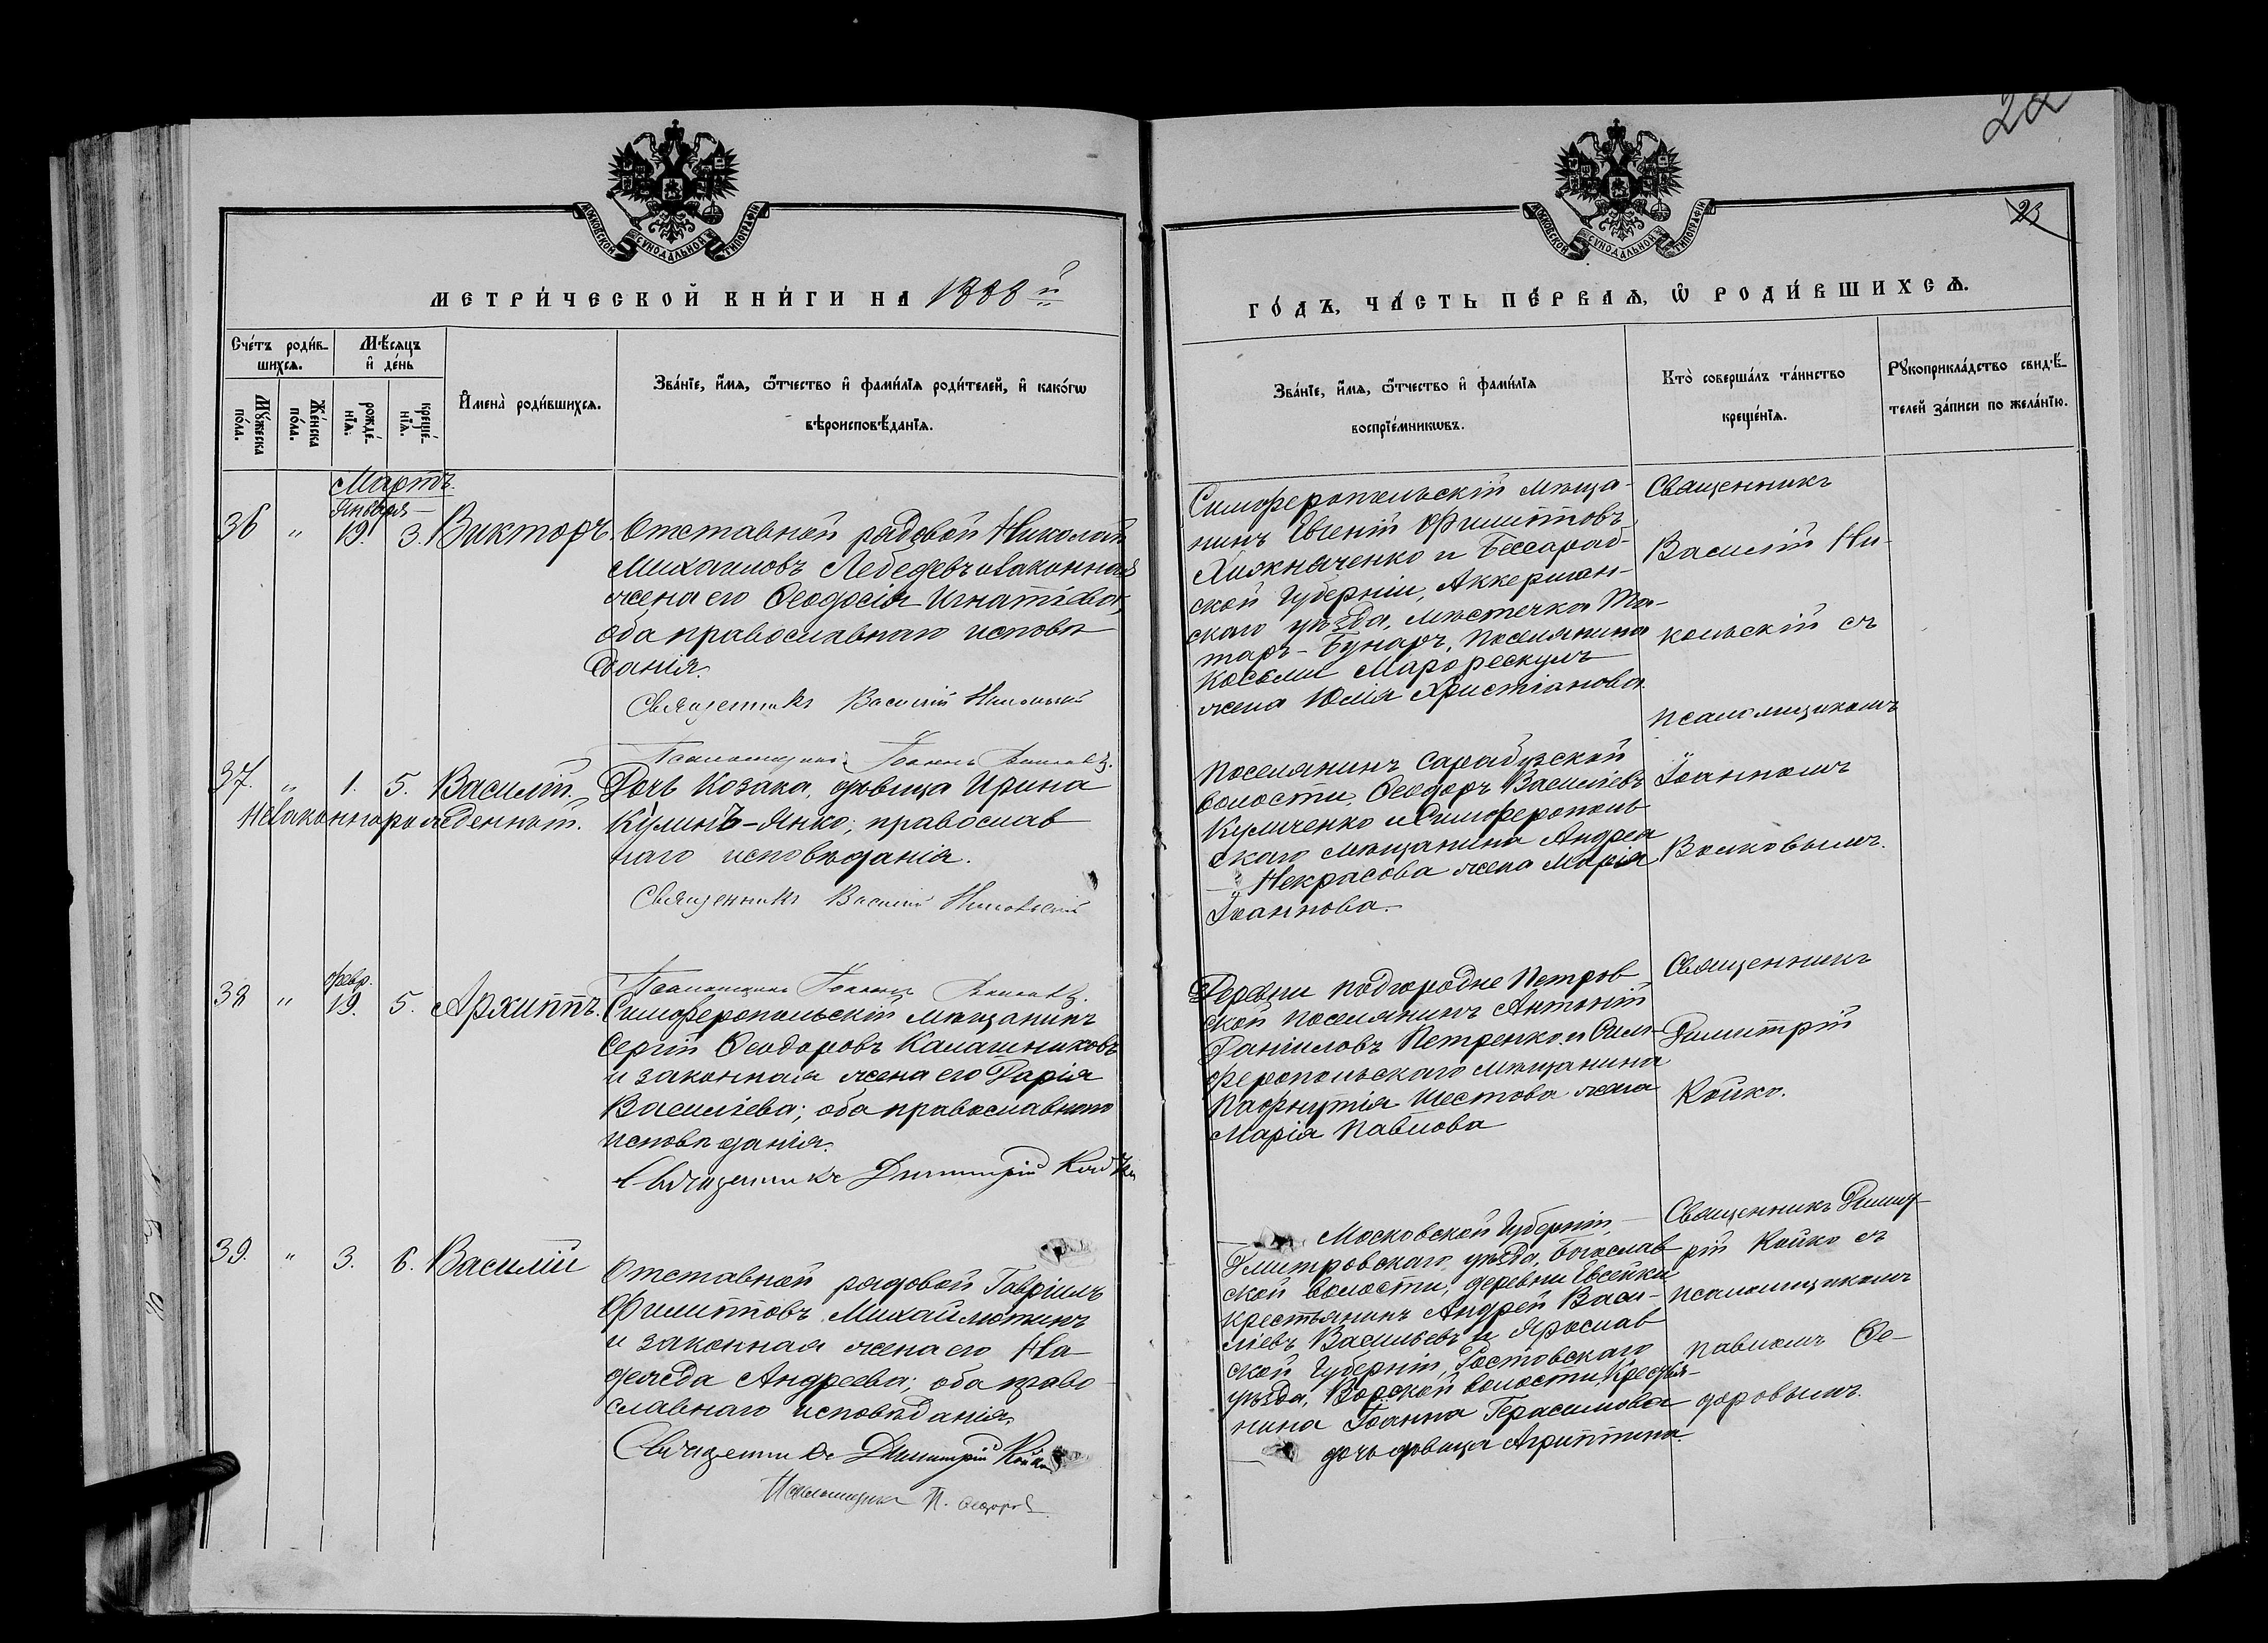 22
23
МОСКОВСКОЙ СѴНОДАЛЬНОЙ ТИПОГРАФІИ
МОСКОВСКОЙ СѴНОДАЛЬНОЙ ТИПОГРАФІИ
МЕТРИ́ЧЕСКОЙ КНИ́ГИ НА 1888 й
ГО́ДЪ, ЧА́СТЬ ПЕ́РВАѦ, Ѽ РОДИ́ВШИХСѦ.
Сче́тъ роди́в-
шихсѧ.
Мꙋ́жеска
по́ла.
Же́нска
по́ла.
Мѣ́сяцъ
и҆ де́нь
рожде́-
нїѧ.
креще́-
нїѧ.
И҆мена̀ роди́вшихсѧ.
Зва́нїе, и҆́мѧ, ѻ҆́тчество и҆ фами́лїѧ роди́телей, и҆ како́гѡ
вѣроисповѣ́данїѧ.
Зва́нїе, и҆́мѧ, ѻ҆́тчество и҆ фами́лїѧ
воспрїе́мникѡвъ.
Кто̀ соверша́лъ та́инство
креще́нїѧ.
Рꙋкоприкла́дство свидѣ́-
телей за́писи по жела́нїю.
Мартъ.
Января
36 " 19. 3. Викторъ.
Отставной рядовой Николай
Михаиловъ Лебедевъ и законная
жена его Ѳеодосія Игнатіева,
оба православнаго исповѣ
данія.
Священникъ Василій Никольскій
Псаломщикъ Іоаннъ Волковъ.
Симферопольскій мѣща-
нинъ Евгеній Филипповъ
Хижначенко и Бессараб-
ской Губерніи, Аккерман-
скаго уѣзда, мѣстечка Та-
таръ-Бунаръ, поселянина
Косьмы
жена Юлія Христіанова.
Священникъ
Василій Ни-
кольскій съ
псаломщикомъ
Іоанномъ
Волковымъ.
37. " 1. 5. Василій.
Незаконнорожденный.
Дочь Козака, дѣвица Ирина
Кулинъ-Янко; православ
наго исповѣданія.
Священникъ Василій Никольскій
Псаломщикъ Іоаннъ Волковъ.
Поселянинъ Сарабузской
волости, Ѳеодоръ Васильевъ
Куличенко и Симферополь
скаго мѣщанина Андрея
Некрасова жена Марія
Іоаннова.
февр.
38 " 19. 5. Архиппъ.
Симферопольскій мѣщанинъ
Сергій Ѳеодоровъ Калашниковъ
и законная жена его Дарія
Васильева; оба православнаго
исповѣданія.
Священникъ Димитрій Койко
Деревни подгородне Петров
ской поселянинъ Антоній
Даніиловъ Петренко и Сим-
феропольскаго мѣщанина
Пафнутія Шестова жена
Марія Павлова
Священникъ
Димитрій
Койко.
39. " 3. 6. Василій
Отставной рядовой Гавріилъ
Филипповъ Михайлюткинъ
и законная жена его На
дежда Андреева; оба право
славнаго исповѣданія.
Священникъ Димитрій Койко
Псаломщикъ П. Ѳедоровъ
Московской Губерніи,
Дмитровскаго уѣзда, Богослав
ской волости, деревни Евсейки
крестьянинъ Андрей Васи-
льевъ Васильевъ и Ярослав
ской Губерніи, Ростовскаго
уѣзда, волости, Крестья-
нина Іоанна Герасимова
дочь дѣвица Агриппина.
Священникъ Димит
рій Койко съ
псаломщикомъ
Павломъ Ѳе-
доровымъ.